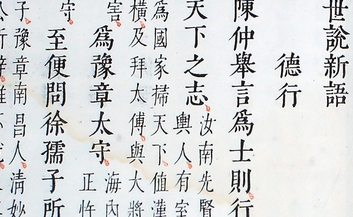 世說新語
德行
陳仲舉言爲士則行
天下之志汝南先賢
輿人有室
爲國家掃天下值漢
橫及拜太傅與大將
害爲豫章太守海內
正忤
守至便問徐孺子所
子豫章南昌人清妙